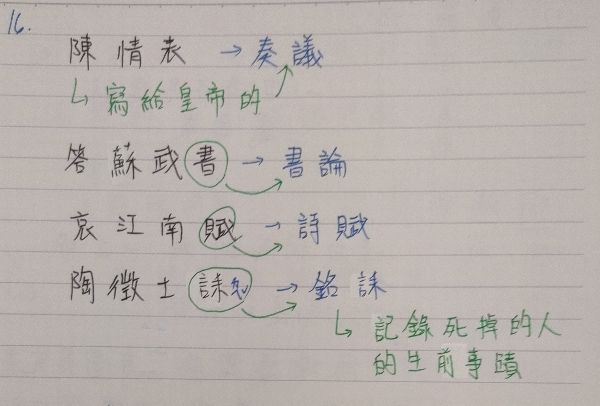 16.
陳情表 → 奏議
↳ 寫給皇帝的
答蘇武書 → 書論
哀江南賦 → 詩賦
陶徵士誄 → 銘誄
↳ 記錄死掉的人
的生前事蹟